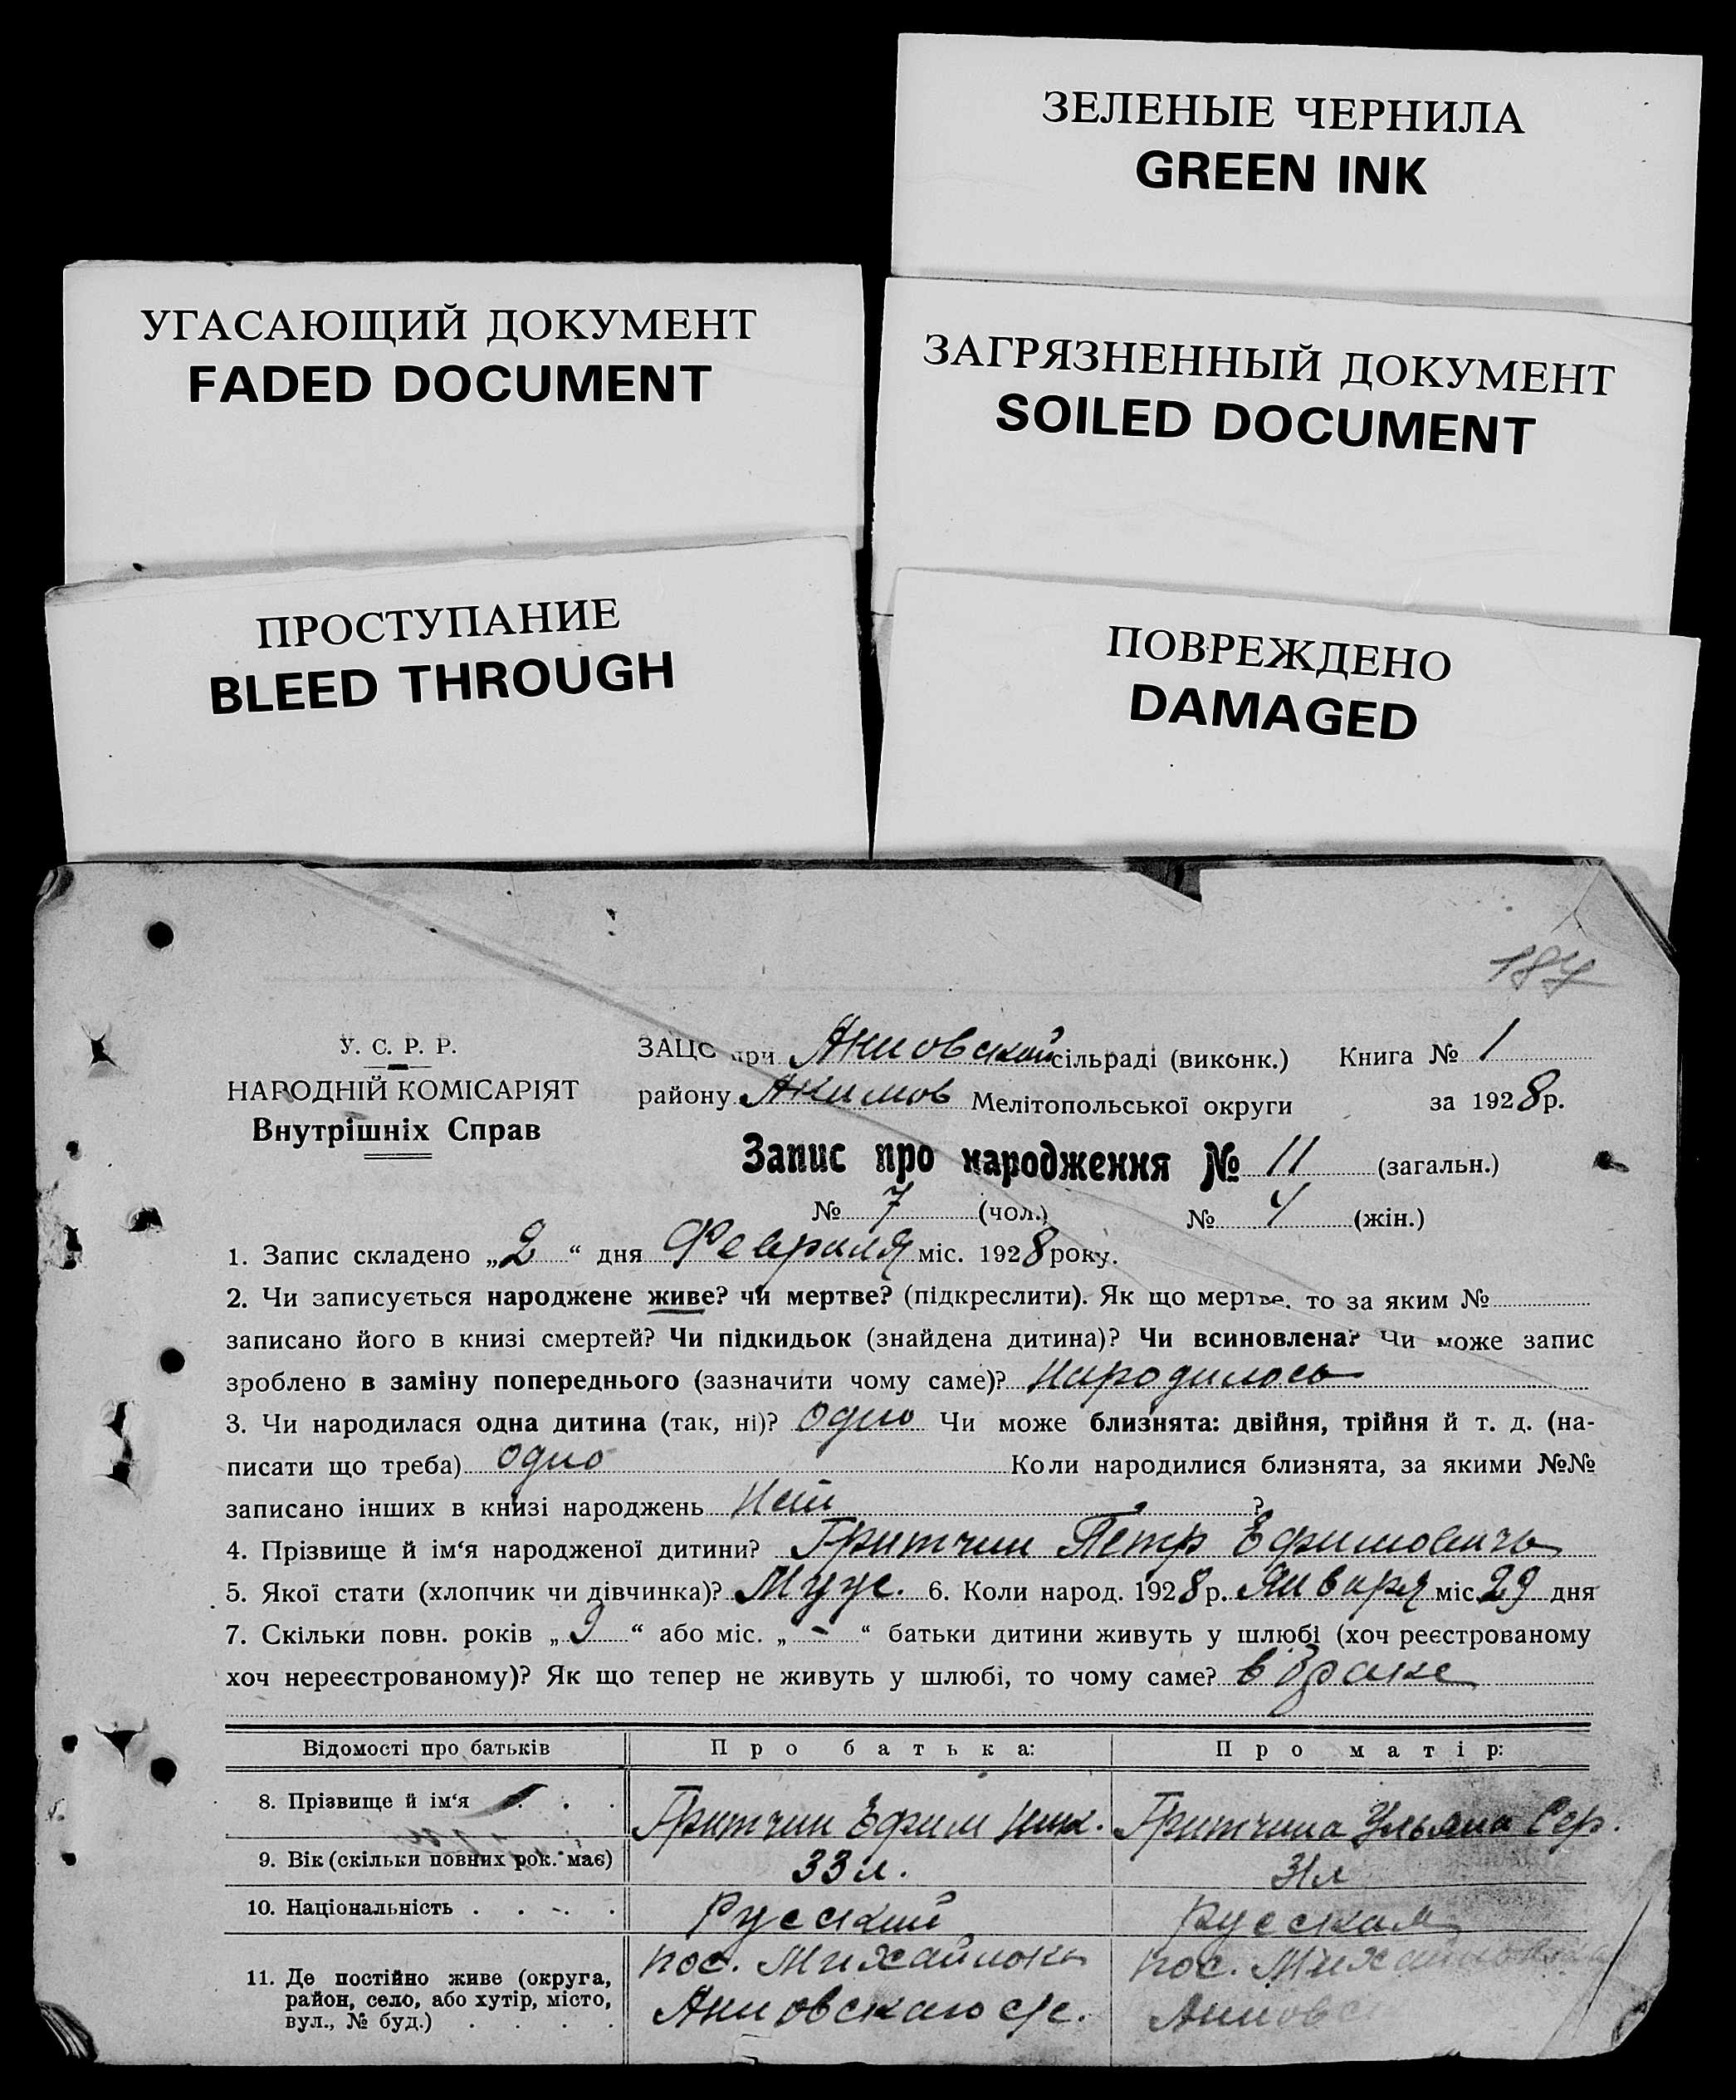 ЗЕЛЕНЫЕ ЧЕРНИЛА
GREEN INK
УГАСАЮЩИЙ ДОКУМЕНТ
FADED DOCUMENT
ЗАГРЯЗНЕННЫЙ ДОКУМЕНТ
SOILED DOCUMENT
ПРОСТУПАНИЕ
BLEED THROUGH
ПОВРЕЖДЕНО
DAMAGED
187
У. С. Р. Р.
НАРОДНІЙ КОМІСАРІЯТ
Внутрішніх Справ
ЗАЦС при Анновской сільраді (виконк.) Книга № 1
району Акимов Мелітопольської округи за 1928 р.
Запис про народження № 11 (загальн.)
№ 7 (чол.) № 4 (жін.)
1. Запис складено „2“ дня Февраля міс. 1928 року.
2. Чи записується народжене живе? чи мертве? (підкреслити). Як що мертве, то за яким №
записано його в книзі смертей? Чи підкидьок (знайдена дитина)? Чи всиновлена? Чи може запис
зроблено в заміну попереднього (зазначити чому саме)? Народилось
3. Чи народилася одна дитина (так, ні)? Одно Чи може близнята: двійня, трійня й т. д. (на-
писати що треба) одно Коли народилися близнята, за якими №№
записано інших в книзі народжень Нет ?
4. Прізвище й ім‘я народженої дитини? Гритчин Петр Ефимовичь
5. Якої стати (хлопчик чи дівчинка)? Муж. 6. Коли народ. 1928 р. Января міс. 29 дня
7. Скільки повн. років „9“ або міс. „-“ батьки дитини живуть у шлюбі (хоч реєстрованому
хоч нереєстрованому)? Як що тепер не живуть у шлюбі, то чому саме? в браке
Відомості про батьків Про батька: Про матір:
8. Прізвище й ім‘я Гритчин Ефим Ник. Гритчина Ульяна Сер.
9. Вік (скільки повних рок. має) 33 л. 31 л
10. Національність Русский Русская
11. Де постійно живе (округа, район, село, або хутір, місто, вул., № буд.)
пос. Михайловка пос. Михайловка
Анновскаго с/с. Анновс